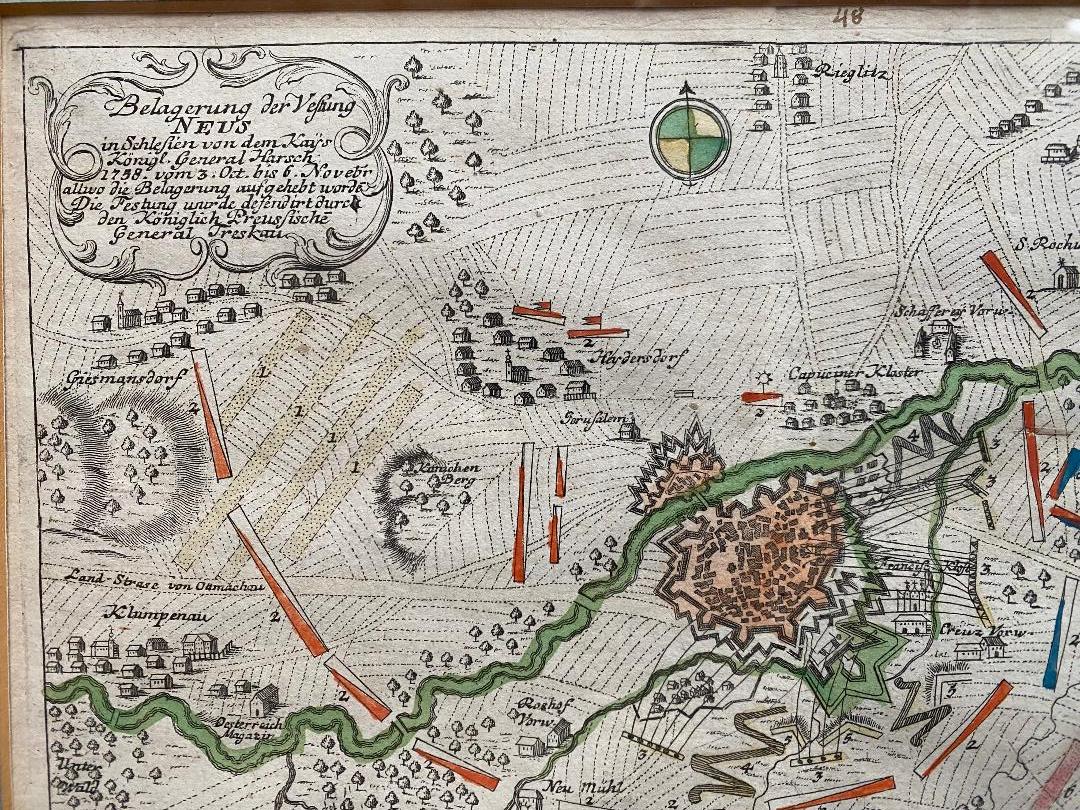 48
Belagerung der Vestung
NEUS
in Schlesien von dem Kays
Königl. General Harsch
1758. vom 3. Oct. bis 6. Novebr
allwo die Belagerung aufgehebt worde
Die Festung wurde defendirt durch
den Königlich Preussische
General Treskau.
Rieglitz
S. Rochu
Schäfferey Vorw.
Giesmansdorf
Heydersdorf
Capuciner Kloster
Jerusalem
Berg
Land-Strase von Otmachau
Klumpenau
Oesterreich
Magazin
Rochof
Vorw.
Neu Mühl
Creuz Vorw.
Unter
Wald
1
1
1
1
2
2
2
2
2
2
2
2
2
2
3
3
3
3
3
3
4
4
5
5
6